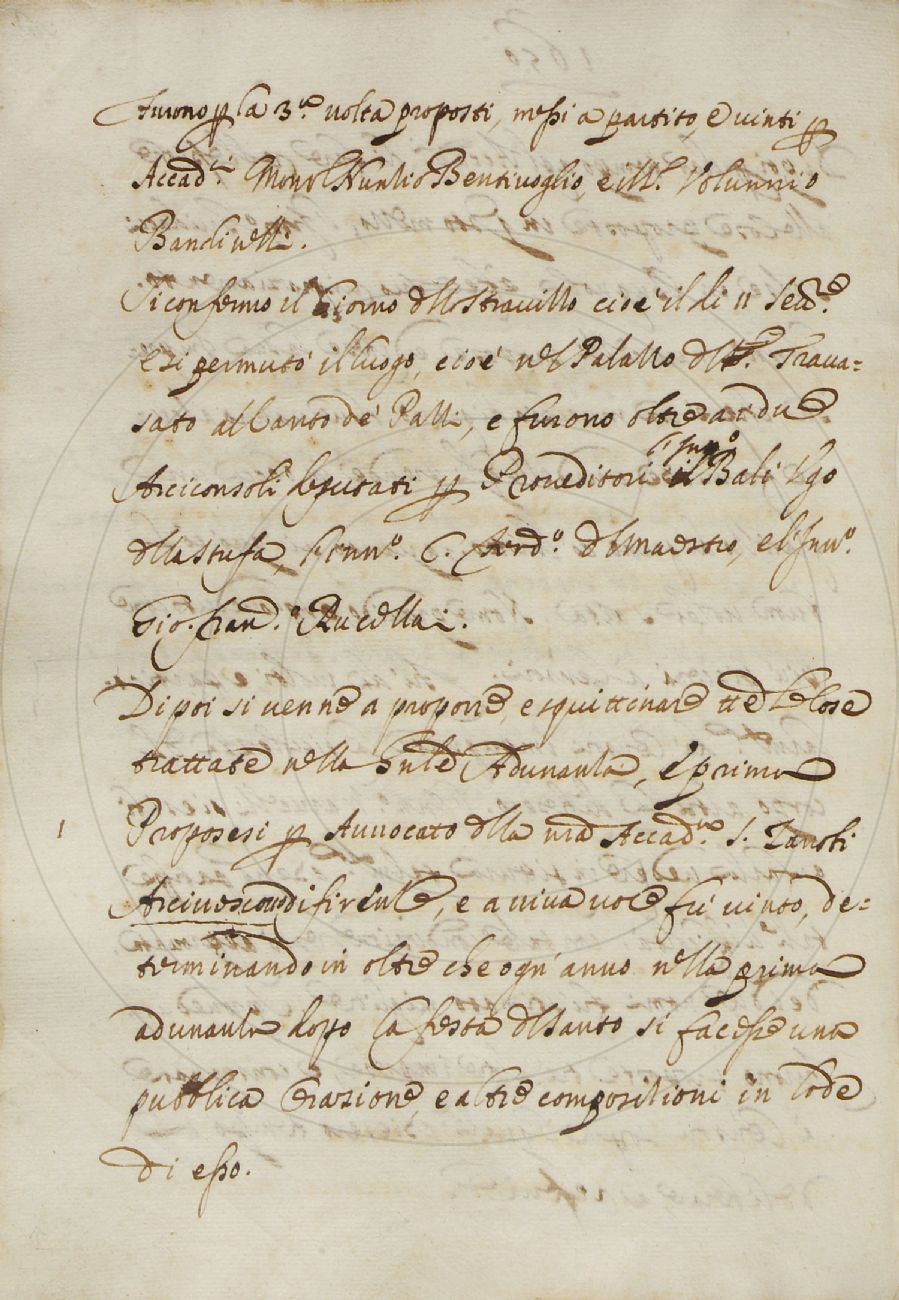 Furono p la 3.ª uolta proposti, messi a partito, e uinti p
Accad.ci Mons.r Annibo Bentiuoglio, e Ill. Volunnio
Bandinelli.
Si confermò il Giorno dllo Strauizzo cioè il dì 11 Sett.e
e si permutò il luogo, cioè nel Palazzo dl S. Traua=
sato al Canto de' Pazzi, e furono oltre a i due
Arciconsoli deputati p Proueditori l'Inn.o il Balì Ugo
dlla Stufa, l'Inn.o C. Ferd.o dl Maestro, e l'Inn.o
Gio. Fran.o Rucellai.
Di poi si uenne a proporre, e squittinare tte le Cose
trattate nella Adunanza, e prima
1 Proposesi p Auuocato dlla nra Accad.a S. Zanobi
Arciuescouo di Firenze, e a uiua uoce fù uinto, de=
terminando in oltre che ogn'anno nella prima
adunanza dopo la festa dl Santo si facesse una
pubblica Orazione, e altre composizioni in lode
di esso.